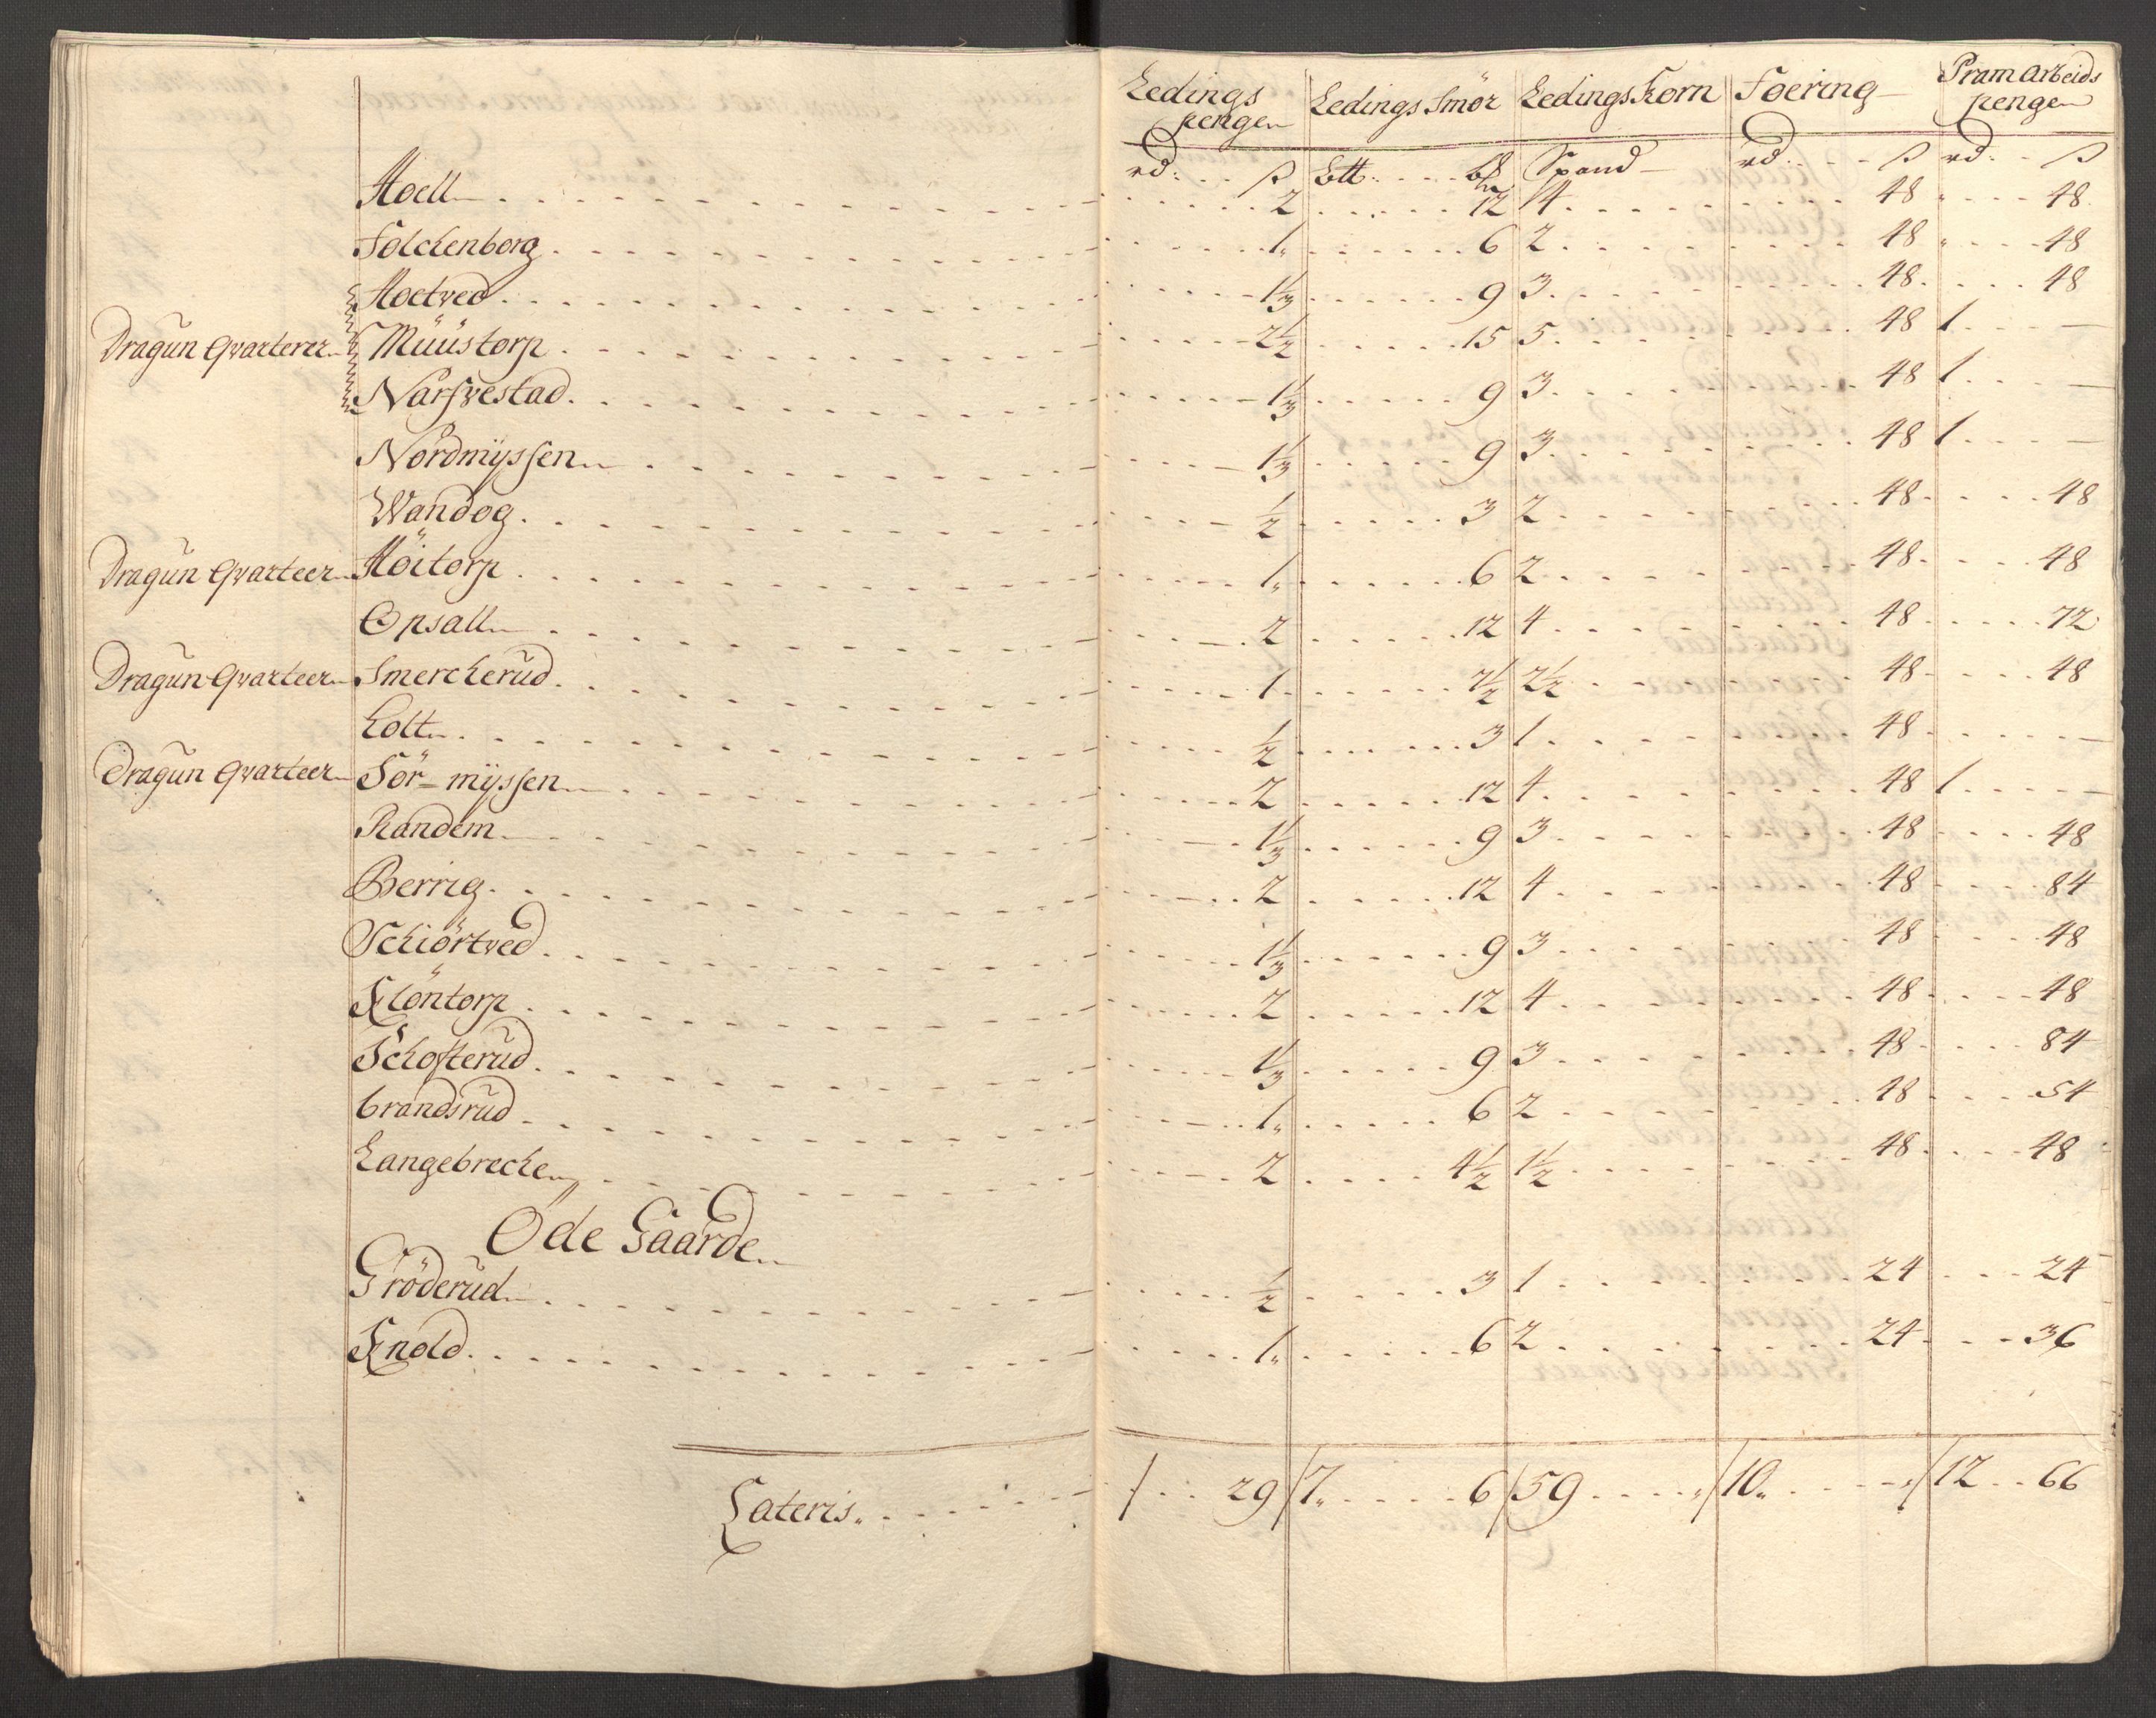 Ledings pengen Ledings Smör Ledings Korn Foering Pram Arbeids pengen
rd: ß Btt: b℔ Spand rd: ß rd: ß
Hoell 2 12 4 48 48
Folckenborg 1 6 2 48 48
Hoetved 1⅓ 9 3 48 48
Dragun Qvarterer Müüstorp 2½ 15 5 48 1 –
Narfvestad 1⅓ 9 3 48 1 –
Nordmÿssen 1⅓ 9 3 48 1 –
Wandog ½ 3 2 48 48
Dragun Qvarteer Höitorp 1 6 2 48 48
Opsall 2 12 4 48 72
Dragun Qvarteer Smercherud 1 7½ 2½ 48 48
Lott ½ 3 1 48 –
Dragun Qvarteer Sör-mÿssen 2 12 4 48 1 –
Randem 1⅓ 9 3 48 48
Berrig 2 12 4 48 84
Schiörtved 1⅓ 9 3 48 48
Klöntorp 2 12 4 48 48
Schofterud 1⅓ 9 3 48 84
brandsrud 1 6 2 48 54
Langebrechen 2 4½ 1½ 48 48
Öde Gaarde
Gröderud ½ 3 1 24 24
Knold 1 6 2 24 36
Lateris / 29 / 7 6 / 59 / 10 / 12 66